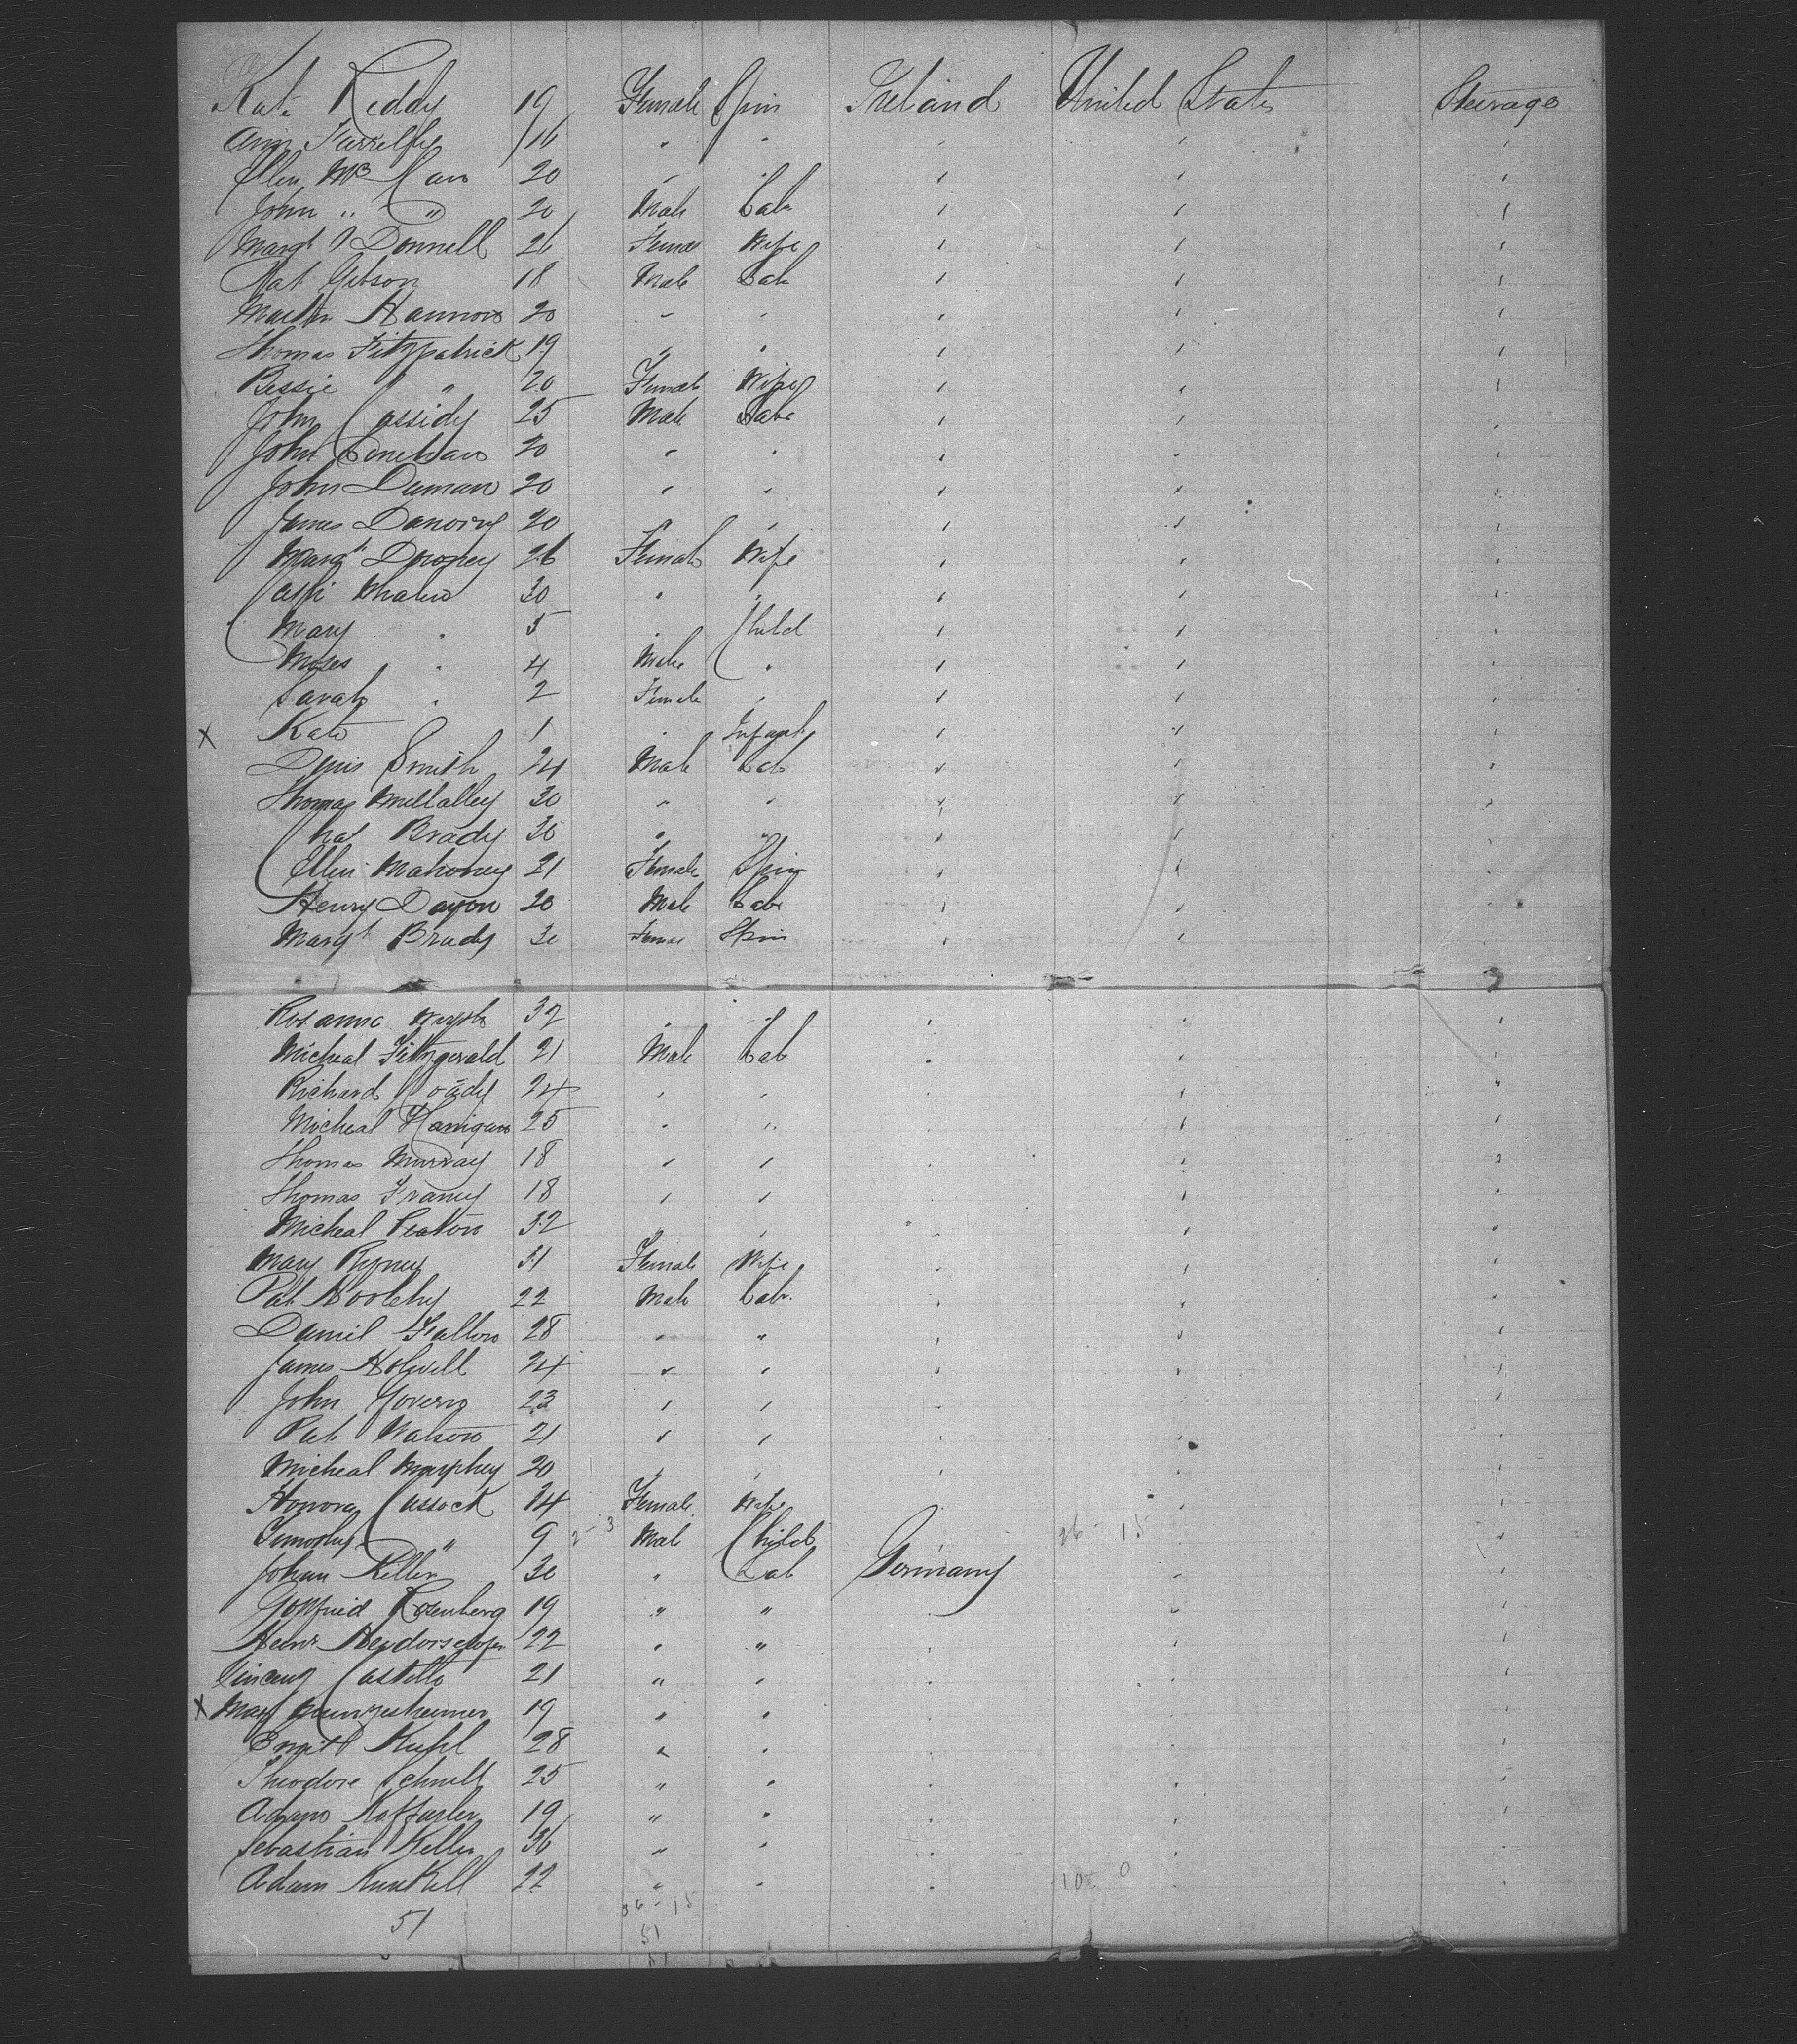 Kate Reddy 19 Female Spin Ireland United States Steerage
Ann Farrelly 16 " " " " "
Ellen McCan 20 " " " " "
John " " 20 Male Lab " " "
Margt O'Donnell 26 Female Wife " " "
Pat Gibson 18 Male Lab " " "
Martin Hannon 20 " " " " "
Thomas Fitzpatrick 19 " " " " "
Bessie " 20 Female Wife " " "
John Cassidy 25 Male Labr " " "
John Lenehan 20 " " " " "
John 20 " " " " "
James 20 " " " " "
Margt 26 Female Wife " " "
Whalen 30 " " " " "
Mary " 5 " Child " " "
Moses " 4 Male " " " "
Sarah " 2 Female " " " "
x Kate 1 " Infant " "
Denis Smith 24 Male Lab " " "
Thomas Mullalley 30 " " " " "
Chas Brady 30 " " " " "
Ellen Mahoney 21 Female Spin " " "
Henry 20 Male Labr " " "
Margt Brady 30 Female Spin " " "
Rosanna 32 " " " " "
Micheal Fitzgerald 21 Male Lab " " "
Richard Coady 24 " " " " "
Micheal Hanigan 25 " " " " "
Thomas Murray 18 " " " " "
Thomas Franey 18 " " " " "
Micheal 32 " " " " "
Mary 31 Female Wife " " "
Pat 22 Male Labr " " "
Daniel Fallon 28 " " " " "
James Holwell 24 " " " " "
John Govern 23 " " " " "
Pat Watson 21 " " " " "
Micheal Murphey 20 " " " " "
Honora Cussack 34 Female Wife " "
Timothy " 9 2-3 Male Child " 26-15 " "
Johan Keller 30 " Lab Germany " "
Gottfried Rosenberg 19 " " " " "
Henr 22 " " " " "
Vincenz Castello 21 " " " " "
x Max 19 " " " " "
Emil Kuhl 28 " " " " "
Theodore Schnell 25 " " " " "
Adam 19 " " " " "
Sebastian Keller 36 " " " " "
Adam Kunkell 22 " " " 10-0 " "
51 36-15
51
51